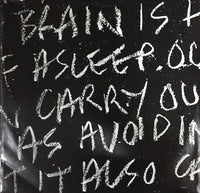 BRAIN IS
ASLEEP. OU
CARRY OU
AS AVOIDIN
AT IT ALSO CA